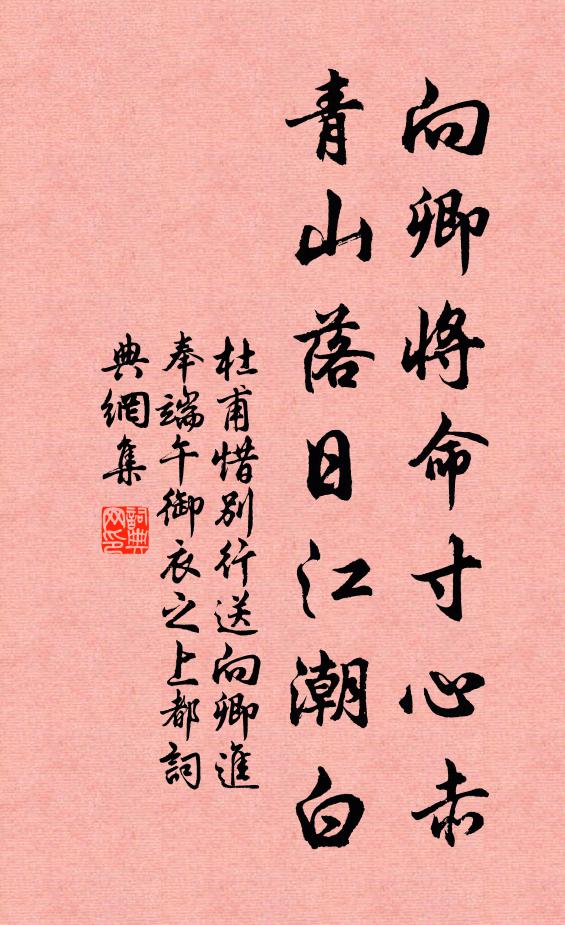 向卿将命寸心赤
青山落日江潮白
杜甫惜别行送向卿進
奉端午御衣之上都詞
典網集
詞典
网印